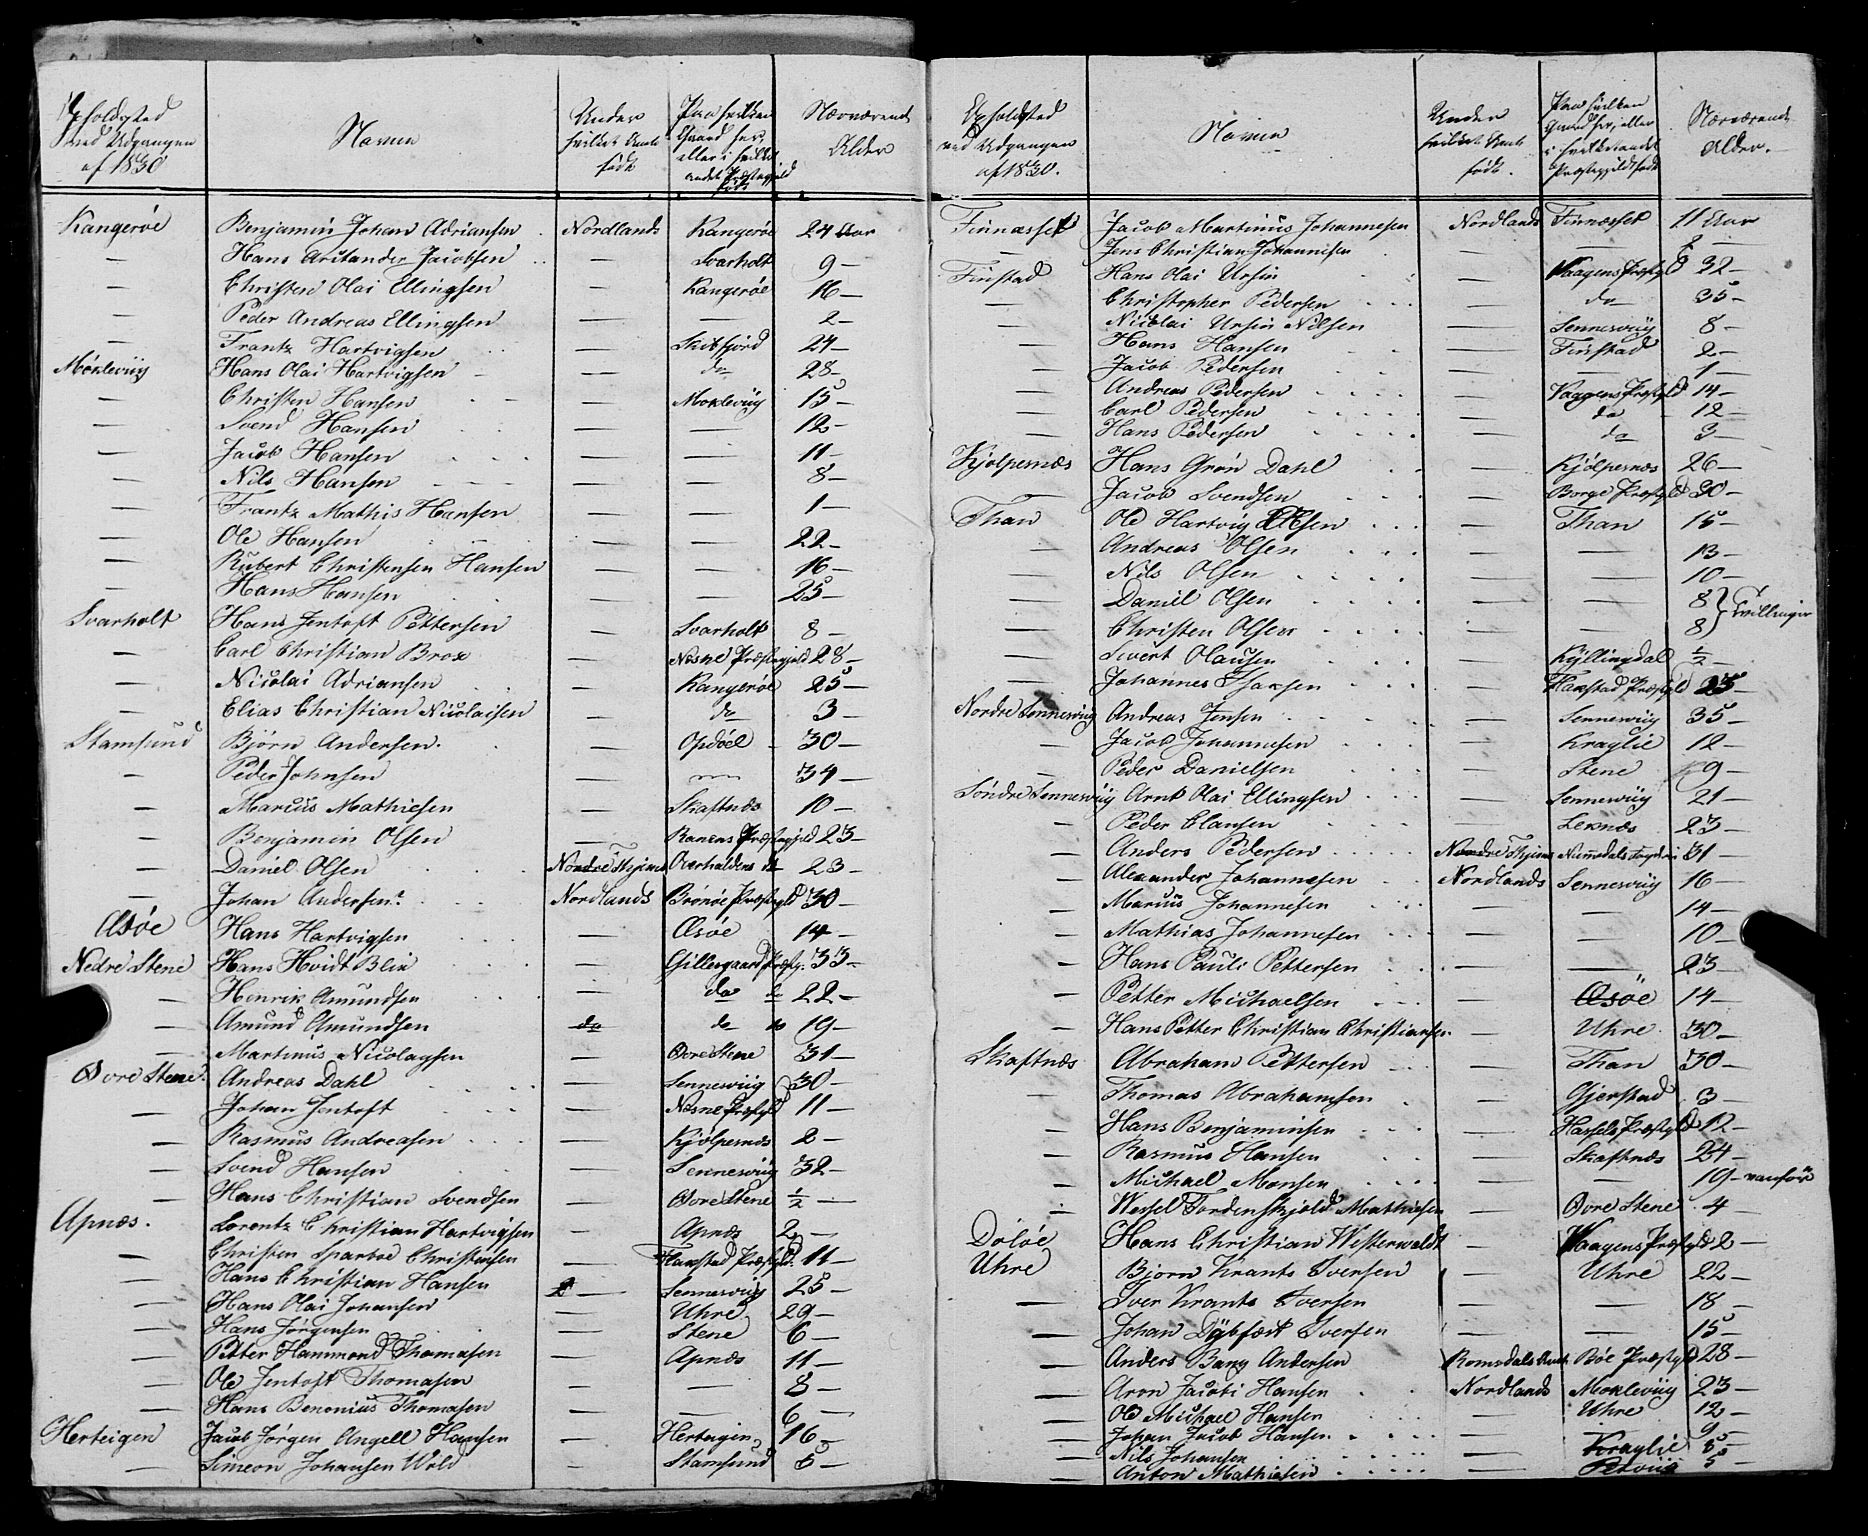 Opholdssted ved Udgangen af 1830 | Navn | Under hvilket Amt født | Paa hvilken Gaard her, eller i hvilket andet Præstegjeld født | Nærværende Alder
Kangerøe | Benjamin Johan Adriansen | Nordlands | Kangerøe | 24 Aar
— | Hans Aritander Jacobsen | — | Svarholt | 9 —
— | Christen Olai Ellingsen | — | Kangerøe | 16 —
— | Peder Andreas Ellingsen | — | — | 2 —
— | Frantz Hartvigsen | — | Skitfjord | 24 —
Moklevüg | Hans Olai Hartvigsen | — | do | 28 —
— | Christen Hansen | — | Moklevüg | 15 —
— | Svend Hansen | — | — | 12 —
— | Jacob Hansen | — | — | 11 —
— | Nils Hansen | — | — | 8 —
— | Frantz Mathis Hansen | — | — | 1 —
— | Ole Hansen | — | — | 22 —
— | Rubert Christensen Hansen | — | — | 16 —
— | Hans Hansen | — | — | 25 —
Svarholt | Hans Jentoft Pettersen | — | Svarholt | 8 —
— | Carl Christian Brox | — | Nesne Præstegjeld | 28 —
— | Nicolai Adriansen | — | Kangerøe | 25 —
— | Elias Christian Nicolaisen | — | do | 3 —
Stamsund | Bjørn Andersen | — | Opdøel | 30 —
— | Peder Johnsen | — | — | 34 —
— | Marcus Mathiesen | — | Skaftnæs | 10 —
— | Benjamin Olsen | — | Ranens Præstegjeld | 23 —
— | Daniel Olsen | Nordre Thjems | Overhaldens do | 23 —
— | Johan Andersen | Nordlands | Brønøe Præstgjld | 30 —
Æsøe | Hans Hartvigsen | — | Æsøe | 14 —
Nedre Stene | Hans Hvidt Blix | — | Gillesgaard Præstg. | 33 —
— | Henrik Amundsen | — | do do | 22 —
— | Amund Amundsen | do | do do | 19 —
— | Martinus Nicolaysen | — | Øvre Stene | 31 —
Øvre Stene | Andreas Dahl | — | Sennesvüg | 30 —
— | Johan Jentoft | — | Nesne Præstgld | 11 —
— | Rasmus Andreasen | — | Kjølpernæs | 2 —
— | Svend Hansen | — | Sennesvüg | 32 —
— | Hans Christian Svendsen | — | Øvre Stene | ½ —
Apnæs. | Lorentz Christian Hartvigsen | — | Apnæs | 2 —
— | Christen Sparboe Christensen | — | Flakstad Præstgld. | 11 —
— | Hans Christian Hansen | — | Sennesvüg | 25 —
— | Hans Olai Johansen | — | Uhre | 29 —
— | Hans Jørgensen | — | Stene | 6 —
— | Petter Hammond Thomasen | — | Apnæs | 11 —
— | Ole Jentoft Thomasen | — | — | 8 —
— | Hans Benonius Thomasen | — | — | 6 —
Herteigen | Jacob Jørgen Angell Hansen | — | Herteigen | 16 —
— | Simeon Johansen Wold | — | Stamsund | 5 —
Opholdsted ved Udgangen af 1830. | Navn | Under hvilket Amt født. | Paa hvilken Gaard her, eller i hvilket andet Præstegjeld født | Nærværende Alder.
Finnæsset | Jacob Martinus Johannesen | Nordlands | Finnæsset | 11 Aar
— | Jens Christian Johannesen | — | — | 8 —
Finstad | Hans Olai Ursin | — | Vaagens Præstgld | 32 —
— | Christopher Pedersen | — | do | 35 —
— | Nicolai Ursin Nilsen | — | Sennesvüg | 8 —
— | Hans Hansen | — | Finstad | 2 —
— | Jacob Pedersen | — | — | 1 —
— | Andreas Pedersen | — | Vaagens Præstgld | 14 —
— | Carl Pedersen | — | do | 12 —
— | Hans Pedersen | — | do | 3 —
Kjølpernæs | Hans Grøn Dahl | — | Kjølpernæs | 26 —
— | Jacob Svendsen | — | Borge Præstgld | 30 —
Than | Ole Hartvig Olsen | — | Than | 15 —
— | Andreas Olsen | — | — | 13 —
— | Nils Olsen | — | — | 10 —
— | Daniel Olsen | — | — | 8 } Tvillinger
— | Christen Olsen | — | — | 8
— | Sivert Olausen | — | Kyllingdal | ½ —
— | Johannes Isaksen | — | Flakstad Præstgld | 25 —
Nordre Sennesvüg | Andreas Jensen | — | Sennesvüg | 35 —
— | Jacob Johannesen | — | Kraglie | 12 —
— | Peder Danielsen | — | Stene | 9 —
Søndre Sennesvüg | Arnt Olai Ellingsen | — | Sennesvüg | 21 —
— | Peder Clausen | — | Leknæs | 23 —
— | Anders Pedersen | Nordre Thjems | Numedals Fogderi | 31 —
— | Alexander Johannesen | Nordlands | Sennesvüg | 16 —
— | Marcus Johannesen | — | — | 14 —
— | Mathias Johannesen | — | — | 10 —
— | Hans Pauli Pettersen | — | — | 23 —
— | Petter Michaelsen | — | Æsöe | 14 —
— | Hans Petter Christian Christiansen | — | Uhre | 30 —
Skaftnæs | Abraham Pettersen | — | Than | 30 —
— | Thomas Abrahamsen | — | Gjerstad | 3 —
— | Hans Benjaminsen | — | Hassels Præstgld | 12 —
— | Rasmus Hansen | — | Skaftnæs | 24 —
— | Michael Monsen | — | — | 19 — vanför
— | Wessel Tordenskjold Mathiesen | — | Øvre Stene | 4 —
Döløe | Hans Christian Westerwaldt | — | Vaagens Præstgld | 2 —
Uhre | Bjørn Krants Iversen | — | Uhre | 22 —
— | Iver Krants Iversen | — | — | 18 —
— | Johan Dybfæst Iversen | — | — | 15 —
— | Anders Bang Andersen | Romsdals Amt | Bøe Præstgld | 28 —
— | Aron Jacobi Hansen | Nordlands | Moklevüg | 23 —
— | Ole Michael Hansen | — | Uhre | 12 —
— | Johan Jacob Hansen | — | — | 9 —
— | Nils Johansen | — | Kraglie | 8 —
— | Anton Mathiesen | — | Petvüg | 5 —